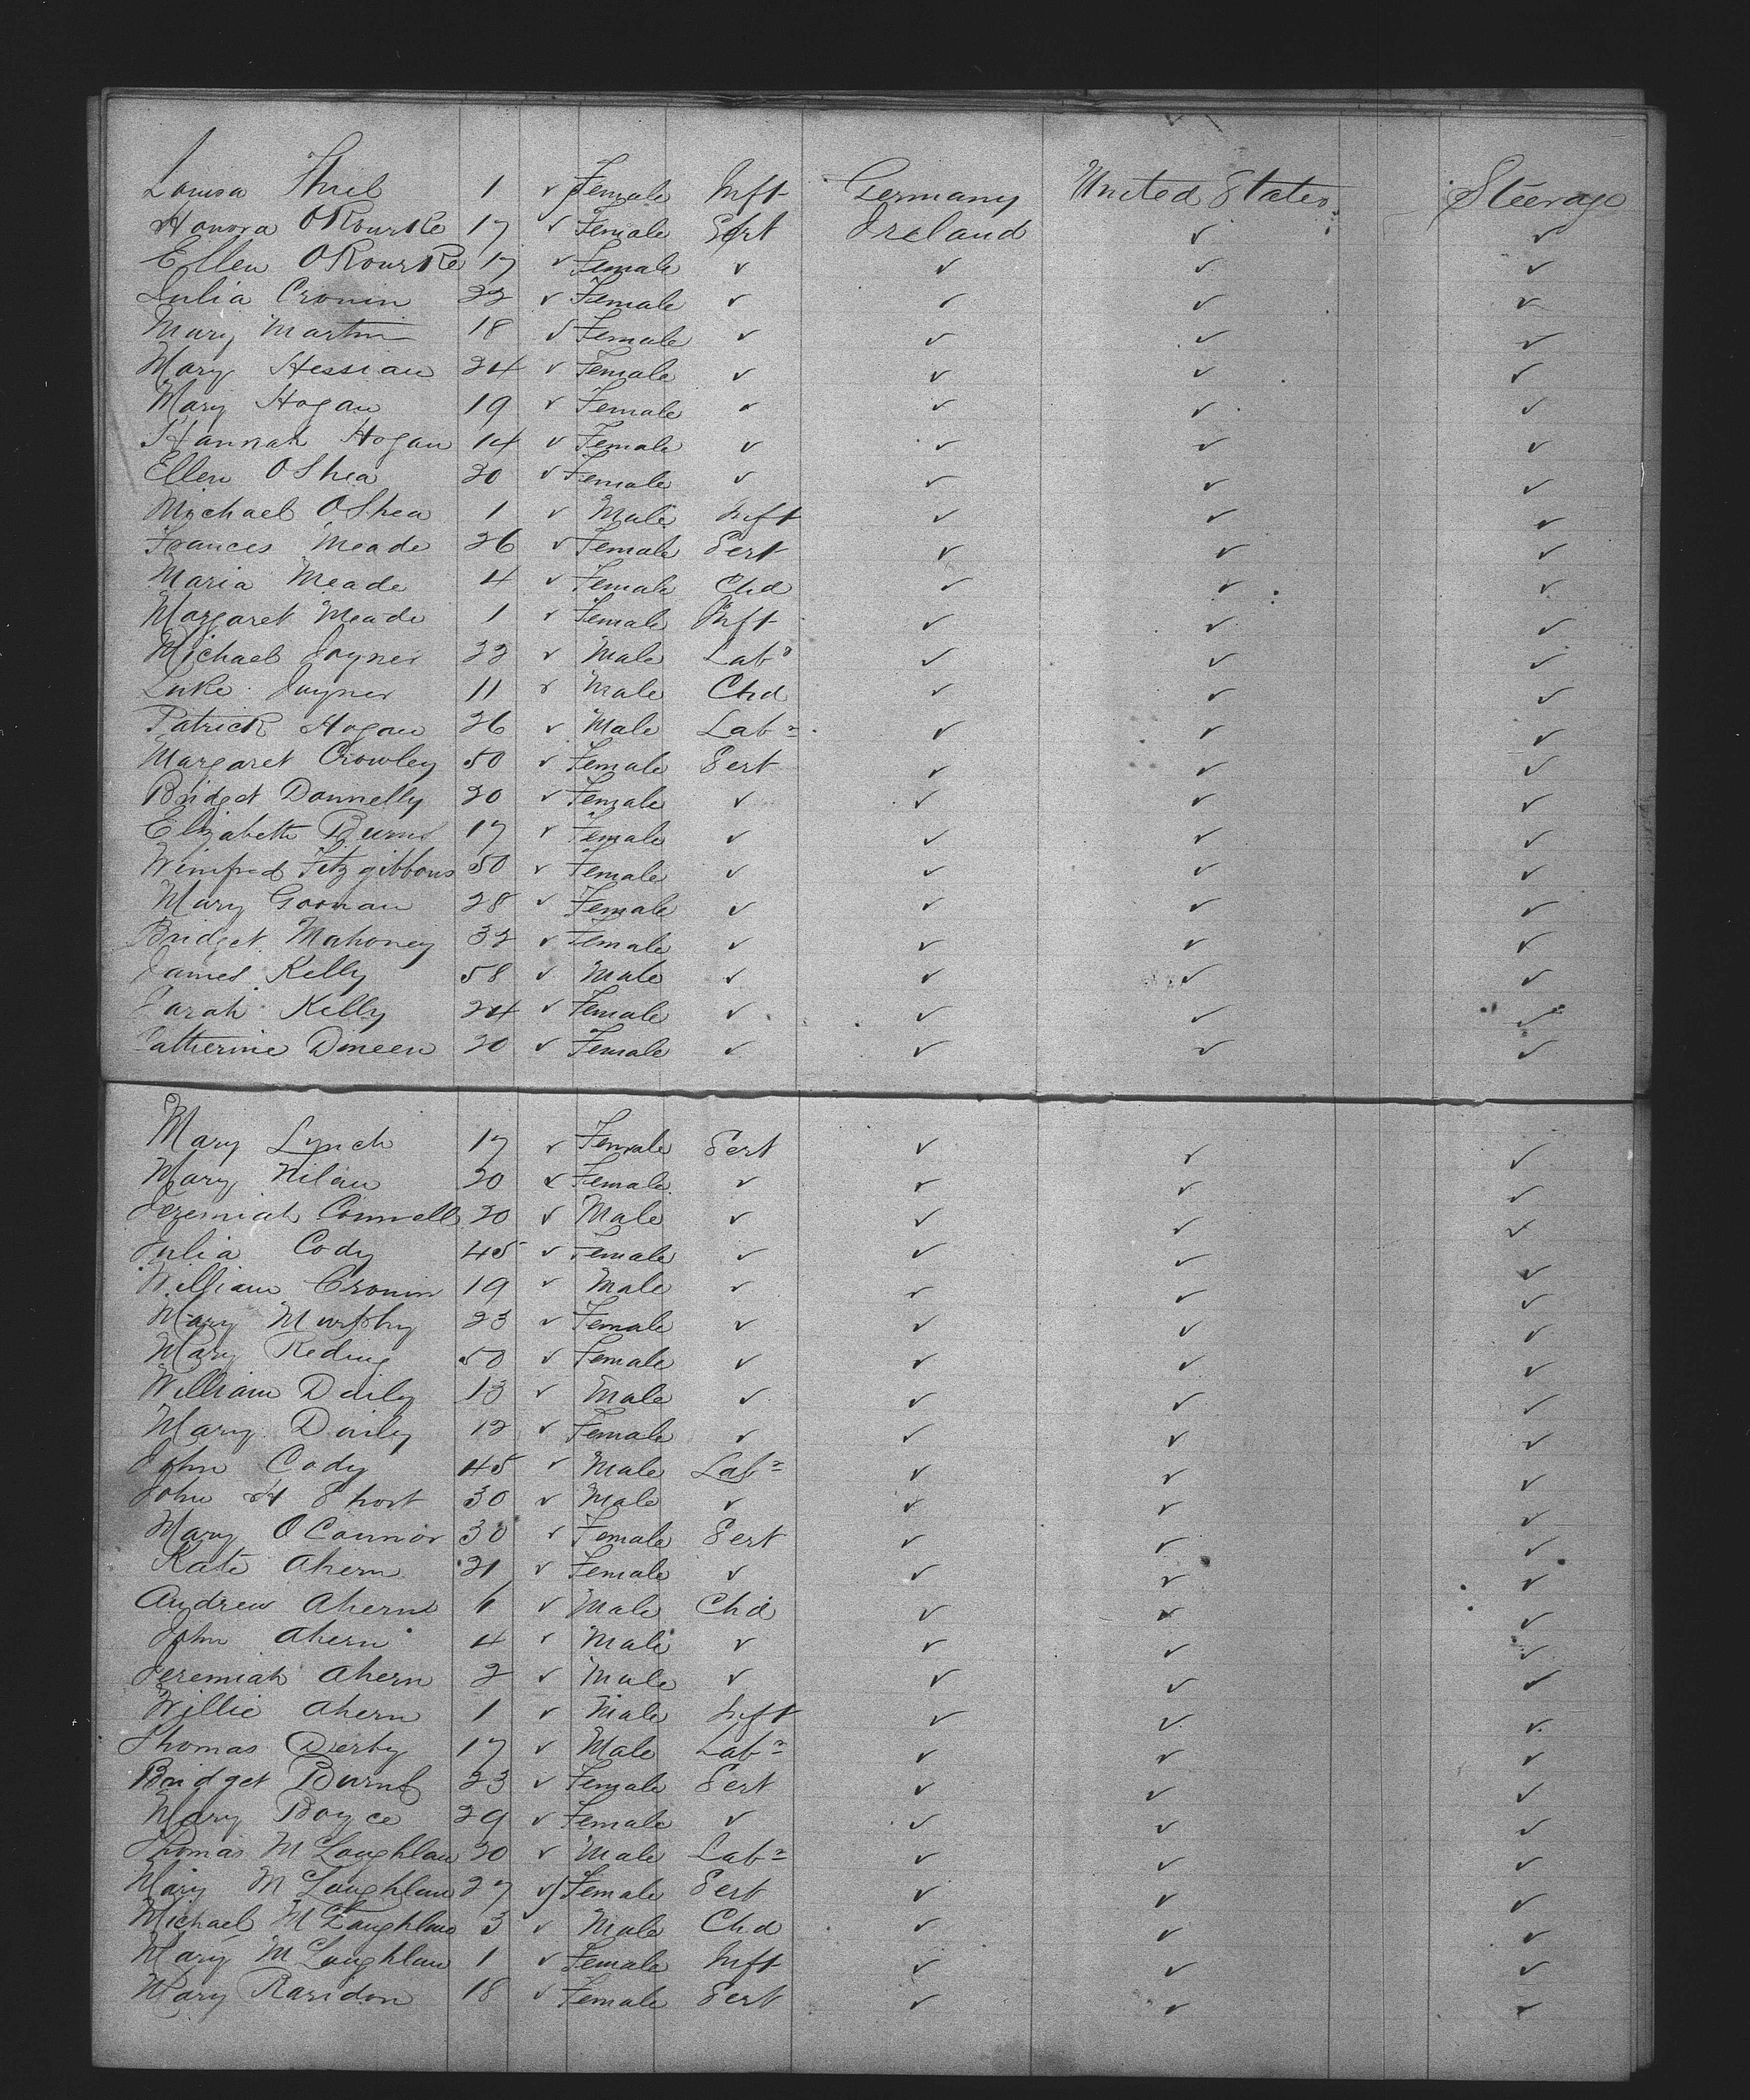 Louisa Thiel 1 ✓ Female Inft Germany United States Steerage
Honora ORourke 17 ✓ Female Sert Ireland ✓ ✓
Ellen ORourke 17 ✓ Female ✓ ✓ ✓ ✓
Julia Cronin 22 ✓ Female ✓ ✓ ✓ ✓
Mary Martin 18 ✓ Female ✓ ✓ ✓ ✓
Mary Hessian 24 ✓ Female ✓ ✓ ✓ ✓
Mary Hogan 19 ✓ Female ✓ ✓ ✓ ✓
Hannah Hogan 14 ✓ Female ✓ ✓ ✓ ✓
Ellen OShea 20 ✓ Female ✓ ✓ ✓ ✓
Michael OShea 1 ✓ Male Inft ✓ ✓ ✓
Frances Meade 26 ✓ Female Sert ✓ ✓ ✓
Maria Meade 4 ✓ Female Chd ✓ ✓ ✓
Margaret Meade 1 ✓ Female Inft ✓ ✓ ✓
Michael Joyner 22 ✓ Male Labr ✓ ✓ ✓
Luke Joyner 11 ✓ Male Chd ✓ ✓ ✓
Patrick Hogan 26 ✓ Male Labr ✓ ✓ ✓
Margaret Crowley 50 ✓ Female Sert ✓ ✓ ✓
Bridget Donnelly 20 ✓ Female ✓ ✓ ✓ ✓
Elizabeth Burns 17 ✓ Female ✓ ✓ ✓ ✓
Winifred Fitzgibbons 50 ✓ Female ✓ ✓ ✓ ✓
Mary Goonan 28 ✓ Female ✓ ✓ ✓ ✓
Bridget Mahoney 32 ✓ Female ✓ ✓ ✓ ✓
James Kelly 58 ✓ Male ✓ ✓ ✓ ✓
Sarah Kelly 24 ✓ Female ✓ ✓ ✓ ✓
Catherine Dineen 20 ✓ Female ✓ ✓ ✓ ✓
Mary Lynch 17 ✓ Female Sert ✓ ✓ ✓
Mary Nilan 20 ✓ Female ✓ ✓ ✓ ✓
Jeremiah Connell 20 ✓ Male ✓ ✓ ✓ ✓
Julia Cody 45 ✓ Female ✓ ✓ ✓ ✓
William Cronin 19 ✓ Male ✓ ✓ ✓ ✓
Mary Murphy 23 ✓ Female ✓ ✓ ✓ ✓
Mary Reding 50 ✓ Female ✓ ✓ ✓ ✓
William Daily 13 ✓ Male ✓ ✓ ✓ ✓
Mary Daily 12 ✓ Female ✓ ✓ ✓ ✓
John Cody 45 ✓ Male Labr ✓ ✓ ✓
John H Short 30 ✓ Male ✓ ✓ ✓ ✓
Mary OConnor 30 ✓ Female Sert ✓ ✓ ✓
Kate Ahern 21 ✓ Female ✓ ✓ ✓ ✓
Andrew Ahern 6 ✓ Male Chd ✓ ✓ ✓
John Ahern 4 ✓ Male ✓ ✓ ✓ ✓
Jeremiah Ahern 2 ✓ Male ✓ ✓ ✓ ✓
Willie Ahern 1 ✓ Male Inft ✓ ✓ ✓
Thomas Derby 17 ✓ Male Labr ✓ ✓ ✓
Bridget Burns 23 ✓ Female Sert ✓ ✓ ✓
Mary Boyce 29 ✓ Female ✓ ✓ ✓ ✓
Thomas McLoughlan 20 ✓ Male Labr ✓ ✓ ✓
Mary McLoughlan 27 ✓ Female Sert ✓ ✓ ✓
Michael McLoughlan 3 ✓ Male Chd ✓ ✓ ✓
Mary McLoughlan 1 ✓ Female Inft ✓ ✓ ✓
Mary Raridon 18 ✓ Female Sert ✓ ✓ ✓